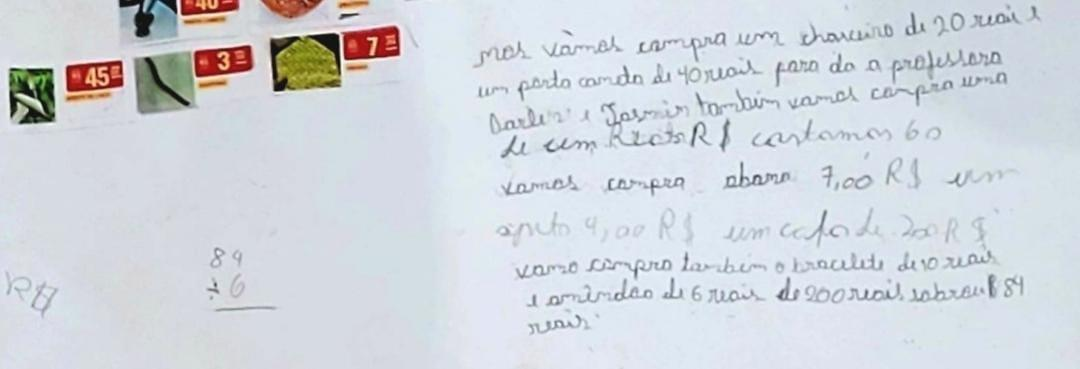 40
45
3
7
mos vàmos compra um chaveiro de 20 reais e
um porta caneta de 40 reais para da a professora
e Jasmin também vamos compra uma
de cem R$ gastamos 60
vamos compra abano 7,00 R$ um
apito 4,00 R$ um de 200 R$
vamo compra também o bracelete de 10 reais
e amindão de 6 reais de 200 reais sobrau 84
reais
84
÷ 6